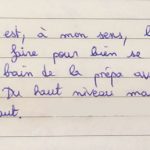 est, à mon sens, l
faire pour bien se
bain de la prépa au
Du haut niveau ma
aut.